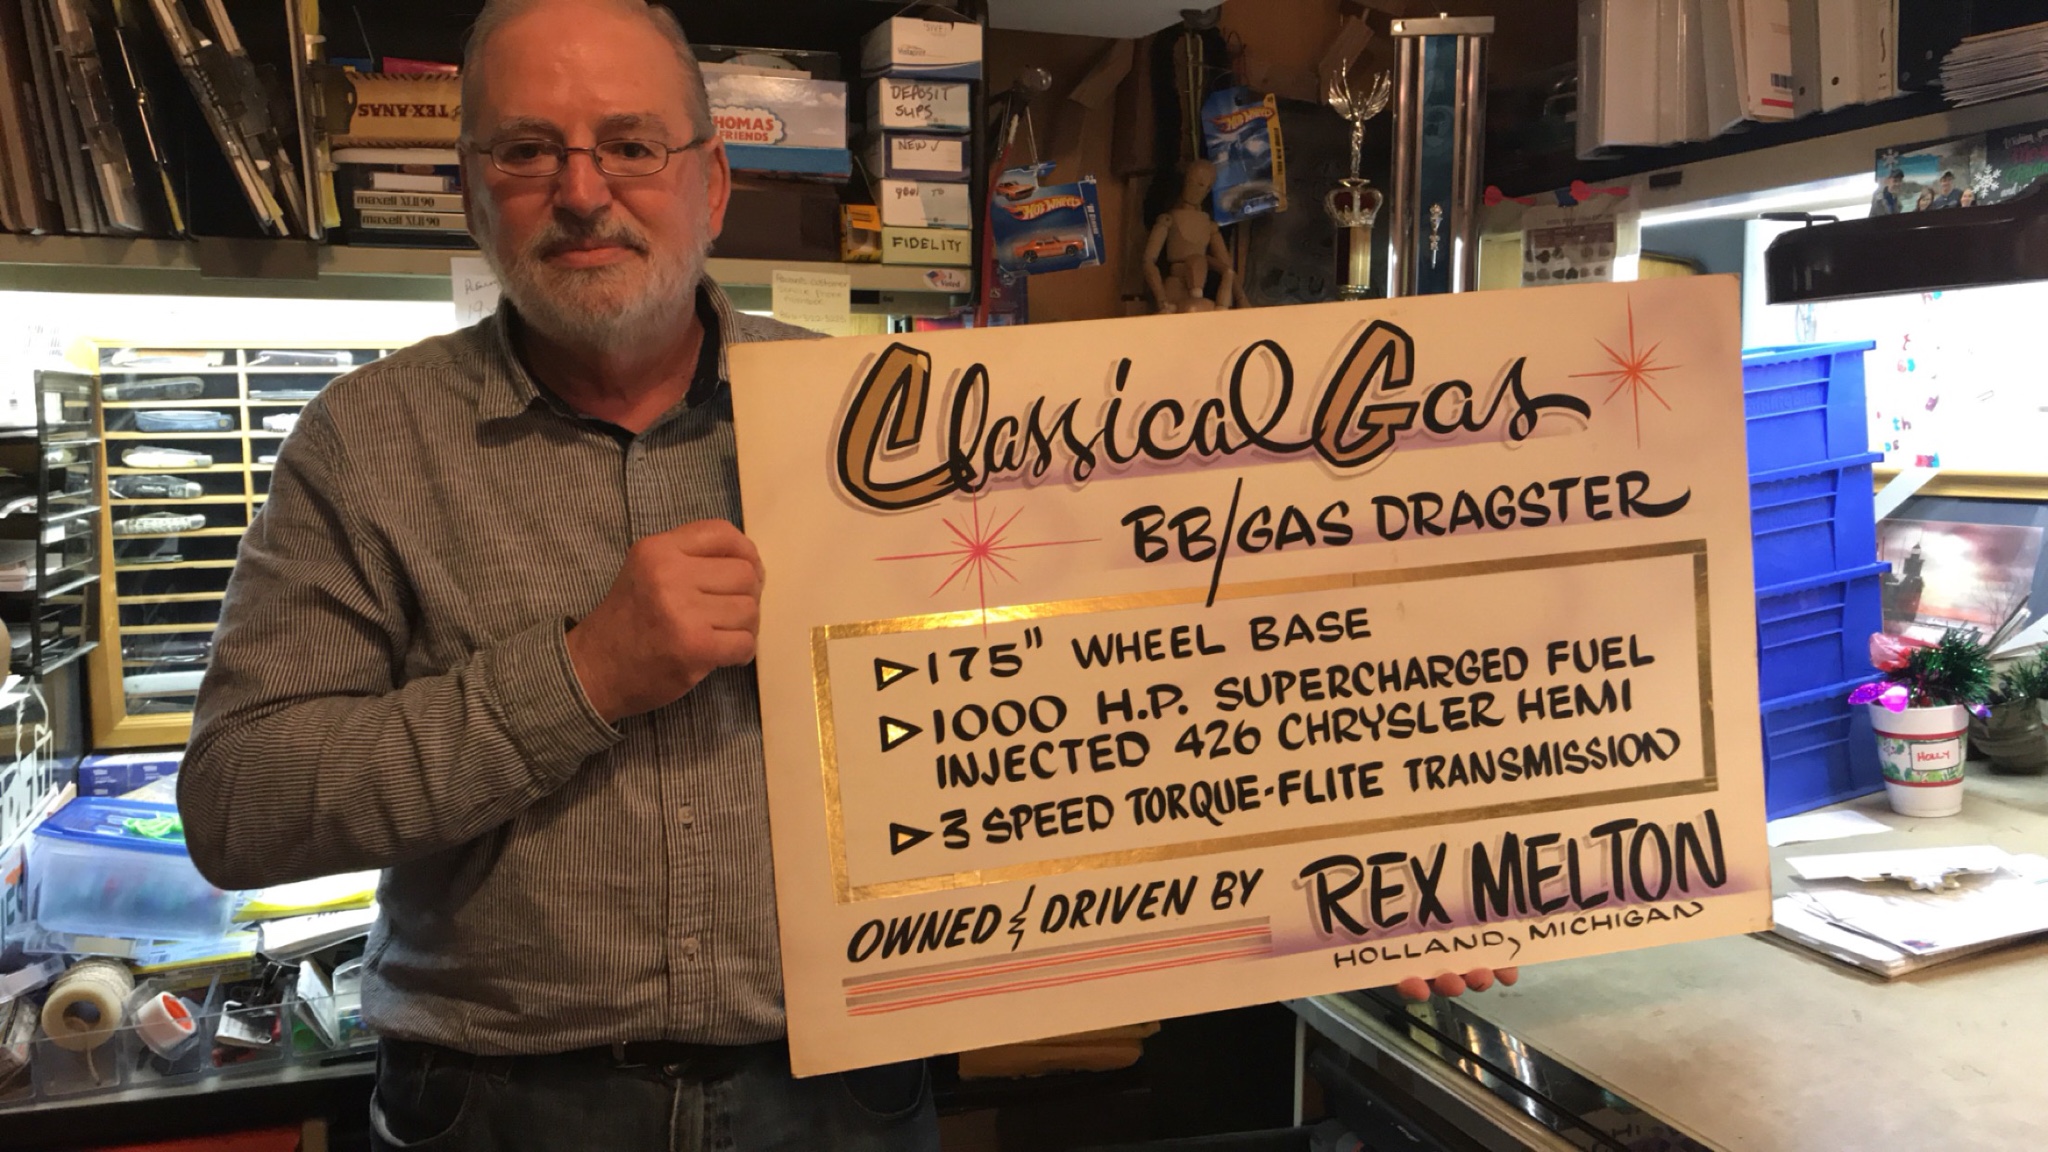 TEXANAS
THOMAS
& FRIENDS
DEPOSIT
SLIPS
NEW ✓
maxell XLII 90
maxell XLII 90
FIDELITY
I Voted
Hot Wheels
Hot Wheels
Classical Gas
BB/GAS DRAGSTER
175" WHEEL BASE
1000 H.P. SUPERCHARGED FUEL
INJECTED 426 CHRYSLER HEMI
3 SPEED TORQUE-FLITE TRANSMISSION
OWNED & DRIVEN BY REX MELTON
HOLLAND, MICHIGAN
HOLLY